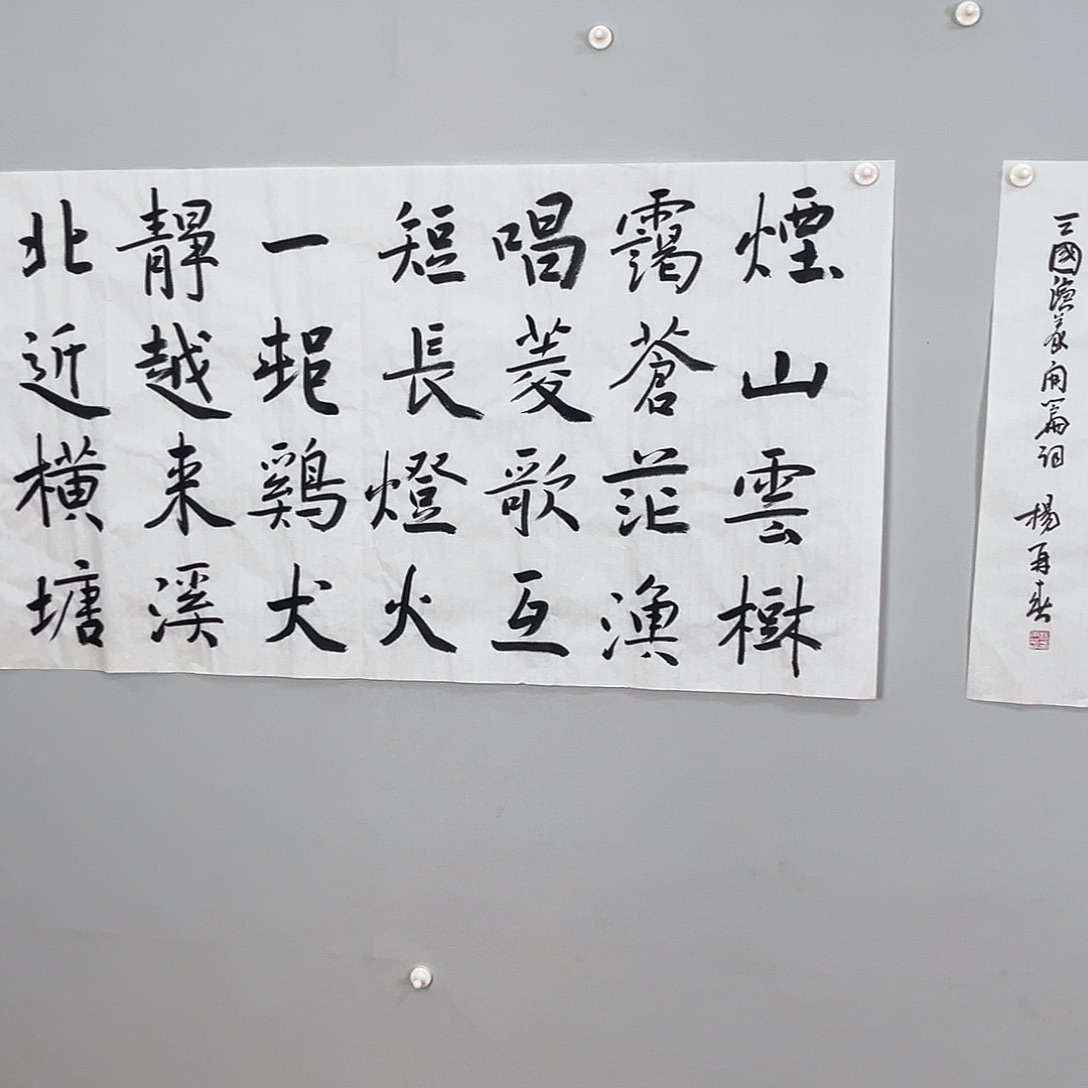 三國演義開篇詞 楊再春
煙山雲樹
靄蒼茫漁
唱菱歌互
短長燈火
一邨鷄犬
靜越来溪
北近橫塘